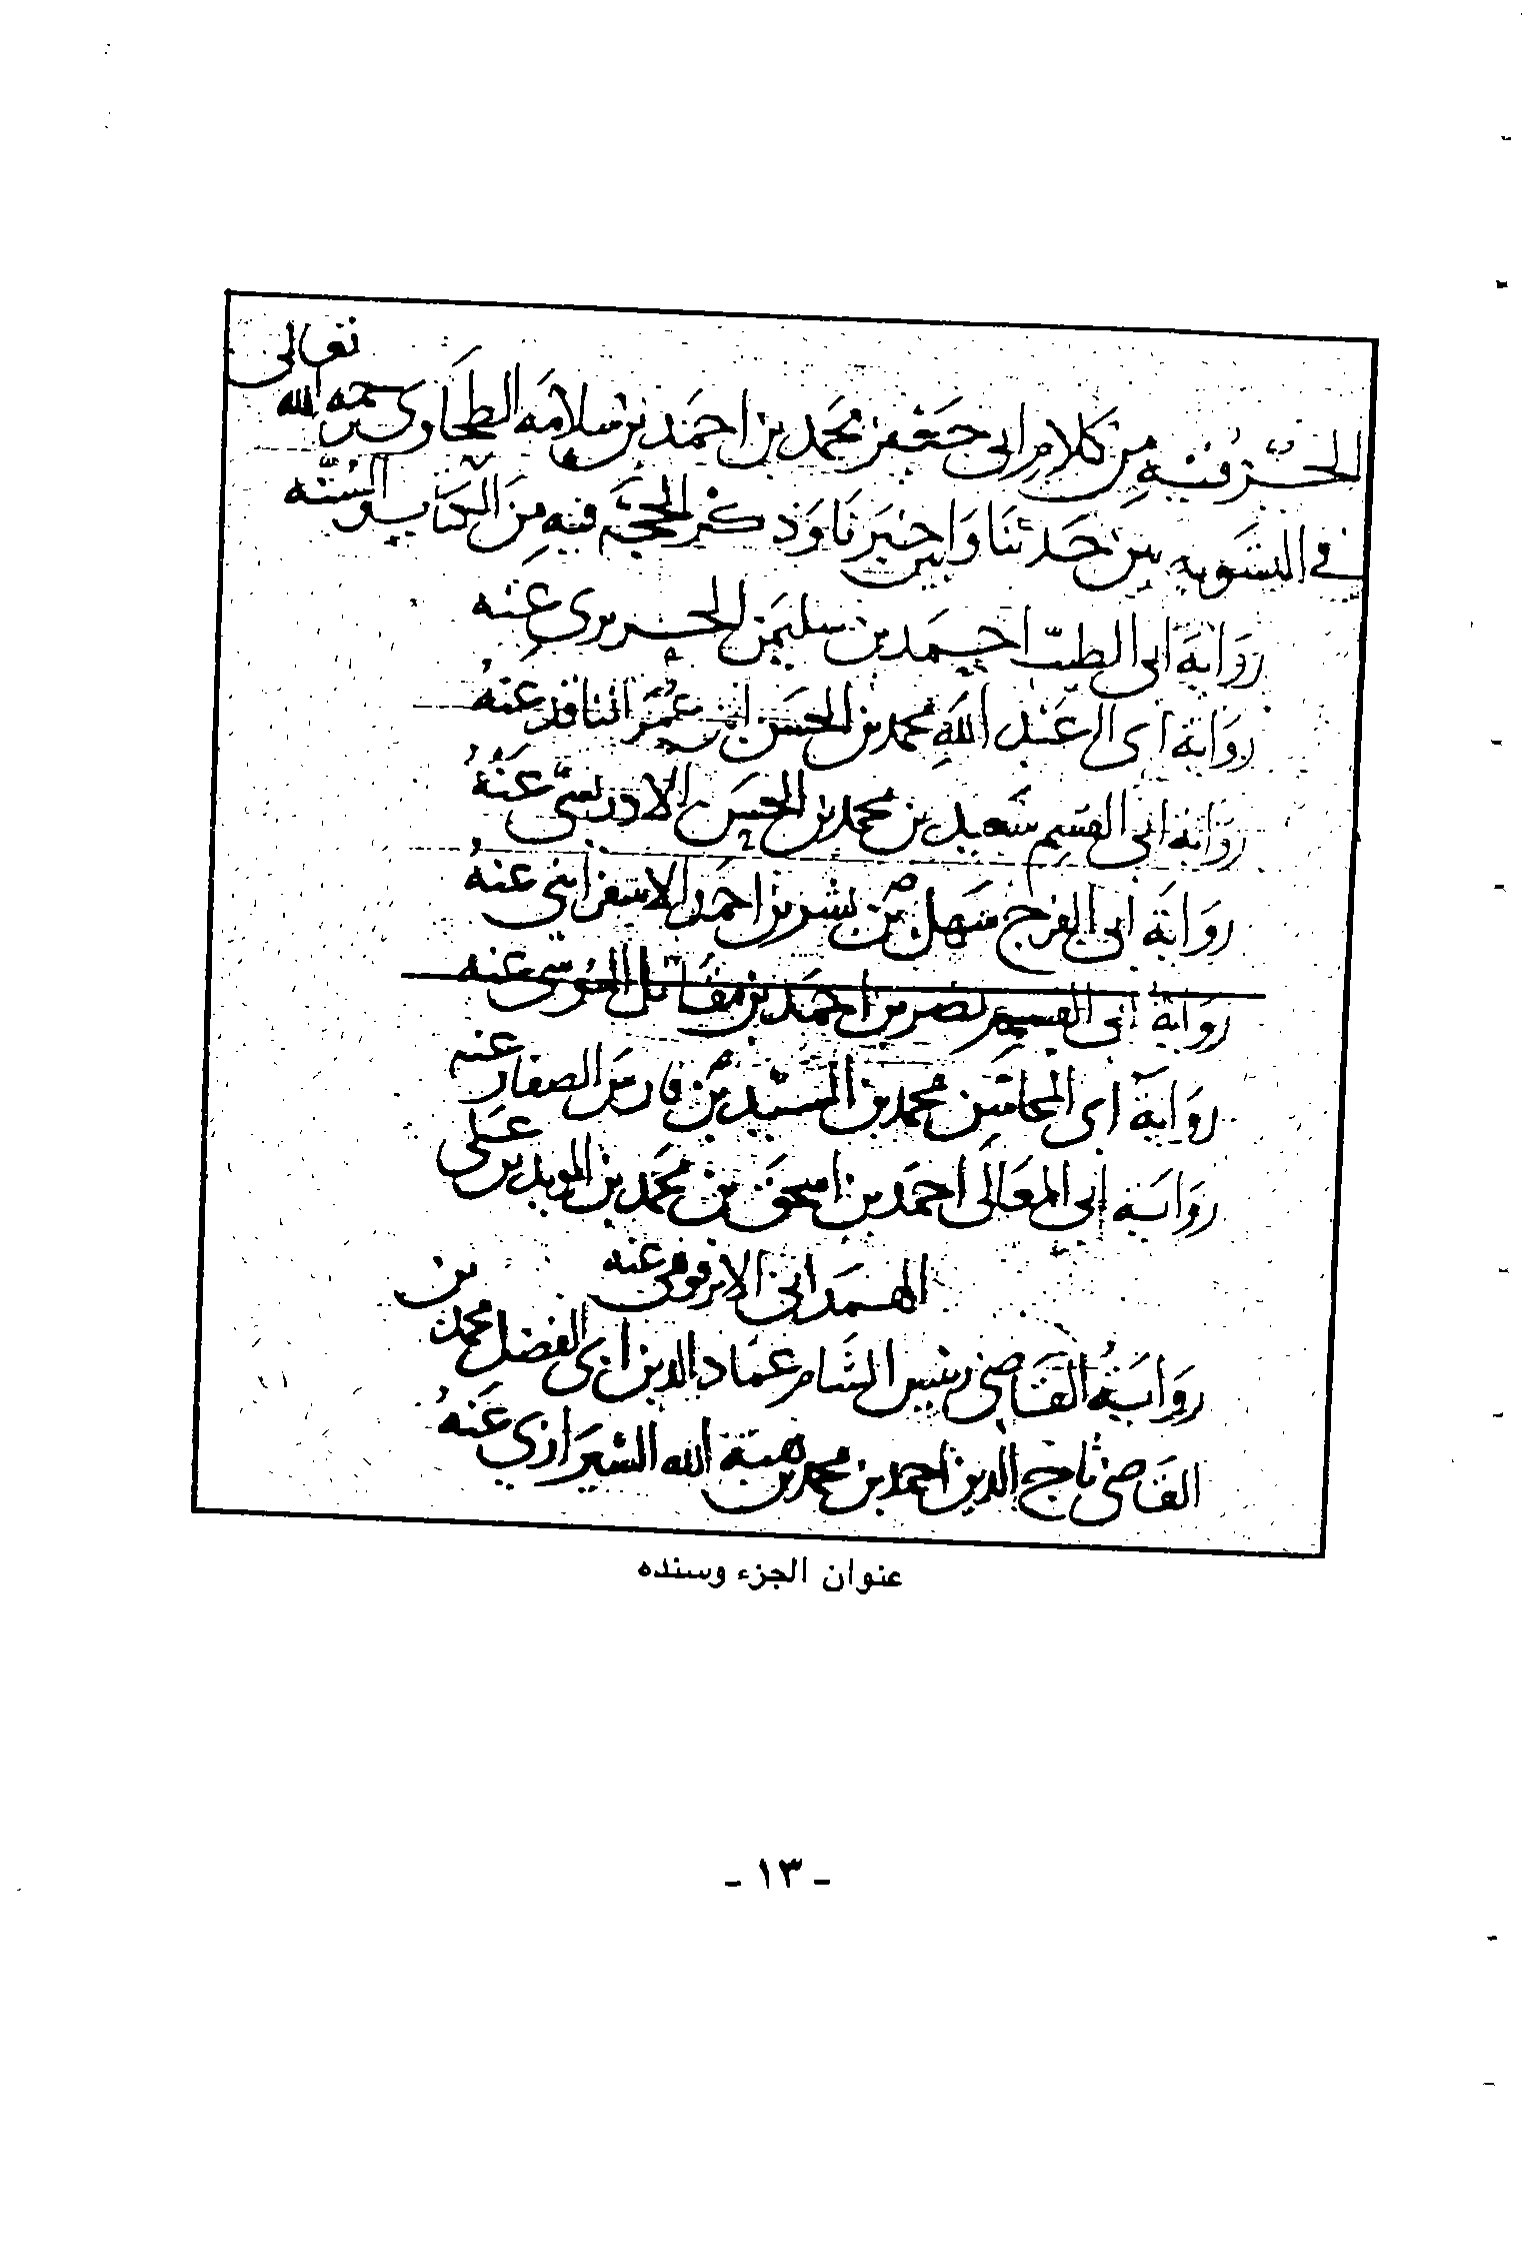 تعالى
الجزء فيه من كلام ابى جعفر محمد بن احمد بن سلامه الطحاوى رحمه الله
في التسويه بين حدثنا وبين اخبرنا وذكر الحجج فيه من الكتاب والسنه
رواية ابى الطيب احمد بن سليمن الحريرى عنه
رواية ابى عبد الله محمد بن الحسن بن عمر الناقد عنه
رواية ابى القسم سعيد بن محمد بن الحسن الادريسى عنه
رواية ابى الفرج سهل بن بشر بن احمد الاسفرايني عنه
رواية ابى القسم نصر بن احمد بن مقاتل السوسى عنه
رواية ابى المحاسن محمد بن السيد بن فارس الصفار عنه
رواية ابى المعالى احمد بن اسحق بن محمد بن المويد بن على
الهمدانى الابرقوهى عنه
رواية القاضى رئيس الشام عماد الدين ابى الفضل محمد بن
القاضى تاج الدين احمد بن محمد بن هبة الله الشيرازي عنه
عنوان الجزء وسنده
- ١٣ -